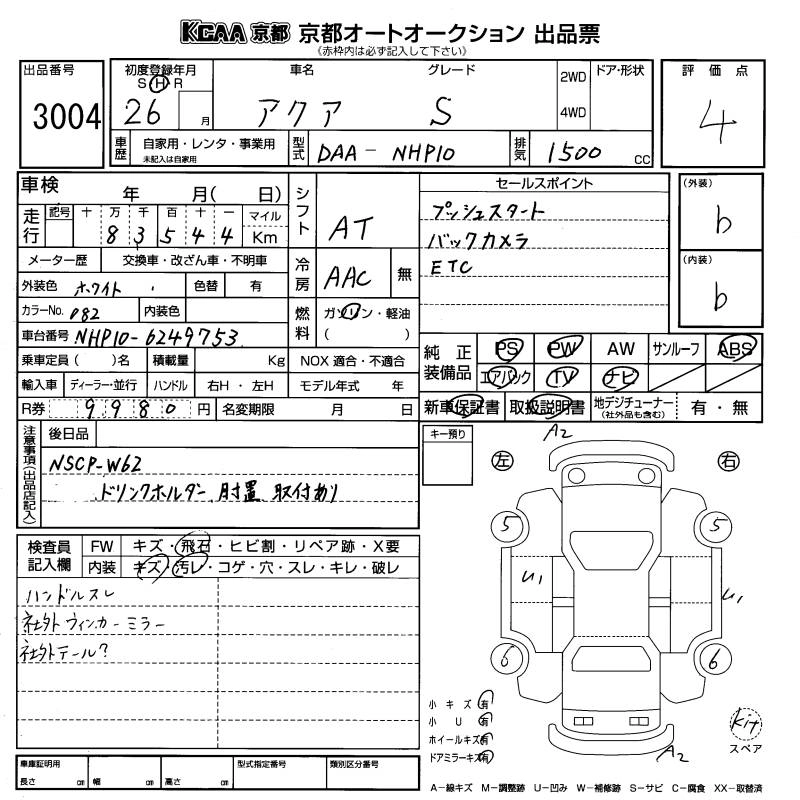 KCAA 京都 京都オートオークション 出品票
(赤枠内は必ず記入して下さい)
出品番号
3004
初度登録年月
S H R
26 月
車名
アクア
グレード
S
2WD
4WD
ドア・形状
評価点
4
車歴
自家用・レンタ・事業用
未記入は自家用
型式
DAA-NHP10
排気
1500 CC
車検 年 月( 日)
走行
記号 十 万 千 百 十 一 マイル
8 3 5 4 4 Km
シフト
AT
メーター歴 交換車・改ざん車・不明車
冷房
AAC 無
外装色 ホワイト 色替 有
カラーNo. 082 内装色
燃料
ガソリン・軽油
( )
車台番号 NHP10-6249753
乗車定員 ( )名 積載量 Kg NOX 適合・不適合
輸入車 ディーラー・並行 ハンドル 右H・左H モデル年式 年
R券 9980 円 名変期限 月 日
セールスポイント
プッシュスタート
バックカメラ
ETC
(外装)
b
(内装)
b
純正装備品
PS PW AW サンルーフ ABS
エアバック TV ナビ
新車保証書 取扱説明書 地デジチューナー (社外品も含む) 有・無
注意事項(出品店記入)
後日品
NSCP-W62
ドリンクホルダー 肘置 取付あり
キー預り
検査員記入欄
FW キズ・飛石・ヒビ割・リペア跡・X要
内装 キズ・汚レ・コゲ・穴・スレ・キレ・破レ
ハンドルスレ
社外ウィンカーミラー
社外テール?
A2
左 右
5 5
U1 U1
6 6
小キズ 有
小U 有
ホイールキズ 有
ドアミラーキズ 有
A2
Kit
スペア
車庫証明用
長さ cm 幅 cm 高さ cm
型式指定番号
類別区分番号
A−線キズ M−調整跡 U−凹み W−補修跡 S−サビ C−腐食 XX−取替済